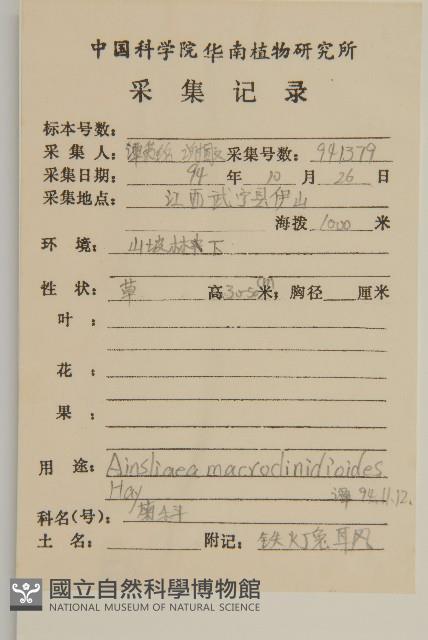 中国科学院华南植物研究所
采集记录
标本号数：
采集人：谭 采集号数：941379
采集日期：94年10月26日
采集地点：江西武宁县伊山
海拨1000米
环境：山坡林下
性状：草 高30-50米；胸径 厘米
叶：
花：
果：
用途：Ainsliaea macroclinidioides
Hay 谭 94.11.12.
科名(号)：菊科
土名： 附记：铁灯兔耳风
國立自然科學博物館
NATIONAL MUSEUM OF NATURAL SCIENCE